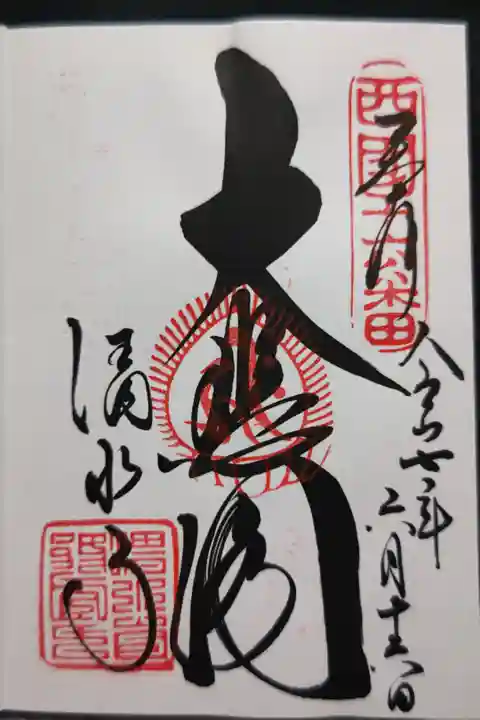 西國十六番
奉拝
令和七年六月十六日
大悲閣
清水寺